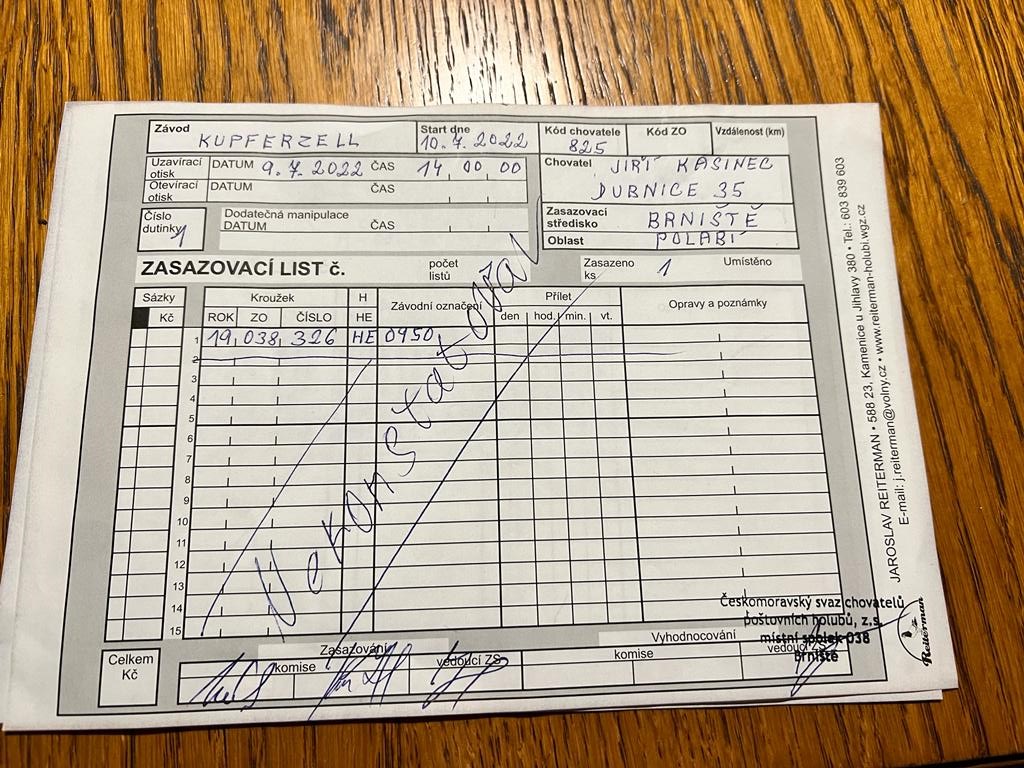 Závod KUPFERZELL Start dne 10.7.2022 Kód chovatele 825 Kód ZO Vzdálenost (km)
Uzavírací otisk DATUM 9.7.2022 ČAS 14 00 00
Otevírací otisk DATUM ČAS
Chovatel JIŘÍ KASINEC
DUBNICE 35
Číslo dutinky 1 Dodatečná manipulace
DATUM ČAS
Zasazovací středisko BRNIŠTĚ
Oblast POLABÍ
ZASAZOVACÍ LIST č. počet listů Zasazeno ks 1 Umístěno
Sázky Kroužek H Závodní označení Přílet Opravy a poznámky
Kč ROK ZO ČÍSLO HE den hod. min. vt.
1 19 038 326 HE 0450
2
3
4
5
6
7
8
9
10
11
12
13
14
15
Nekonstatoval
Celkem Kč
Zasazování
komise vedoucí ZS
Vyhodnocování
komise vedoucí ZS
Českomoravský svaz chovatelů
poštovních holubů, z.s.
místní spolek 038
Brniště
JAROSLAV REITERMAN • 588 23, Kamenice u Jihlavy 380 • Tel.: 603 839 603
E-mail: j.reiterman@volny.cz • www.reiterman-holubi.wgz.cz
Reiterman